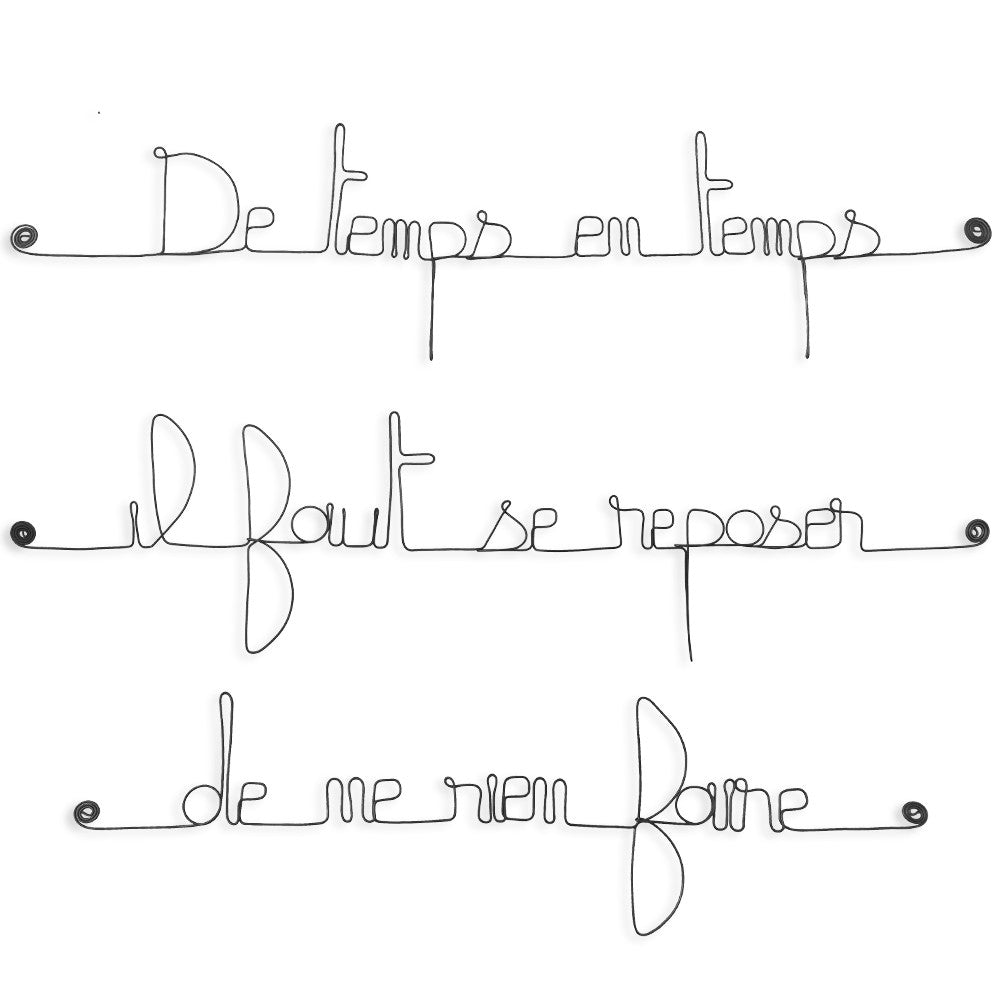 De temps en temps
il faut se reposer
de ne rien faire